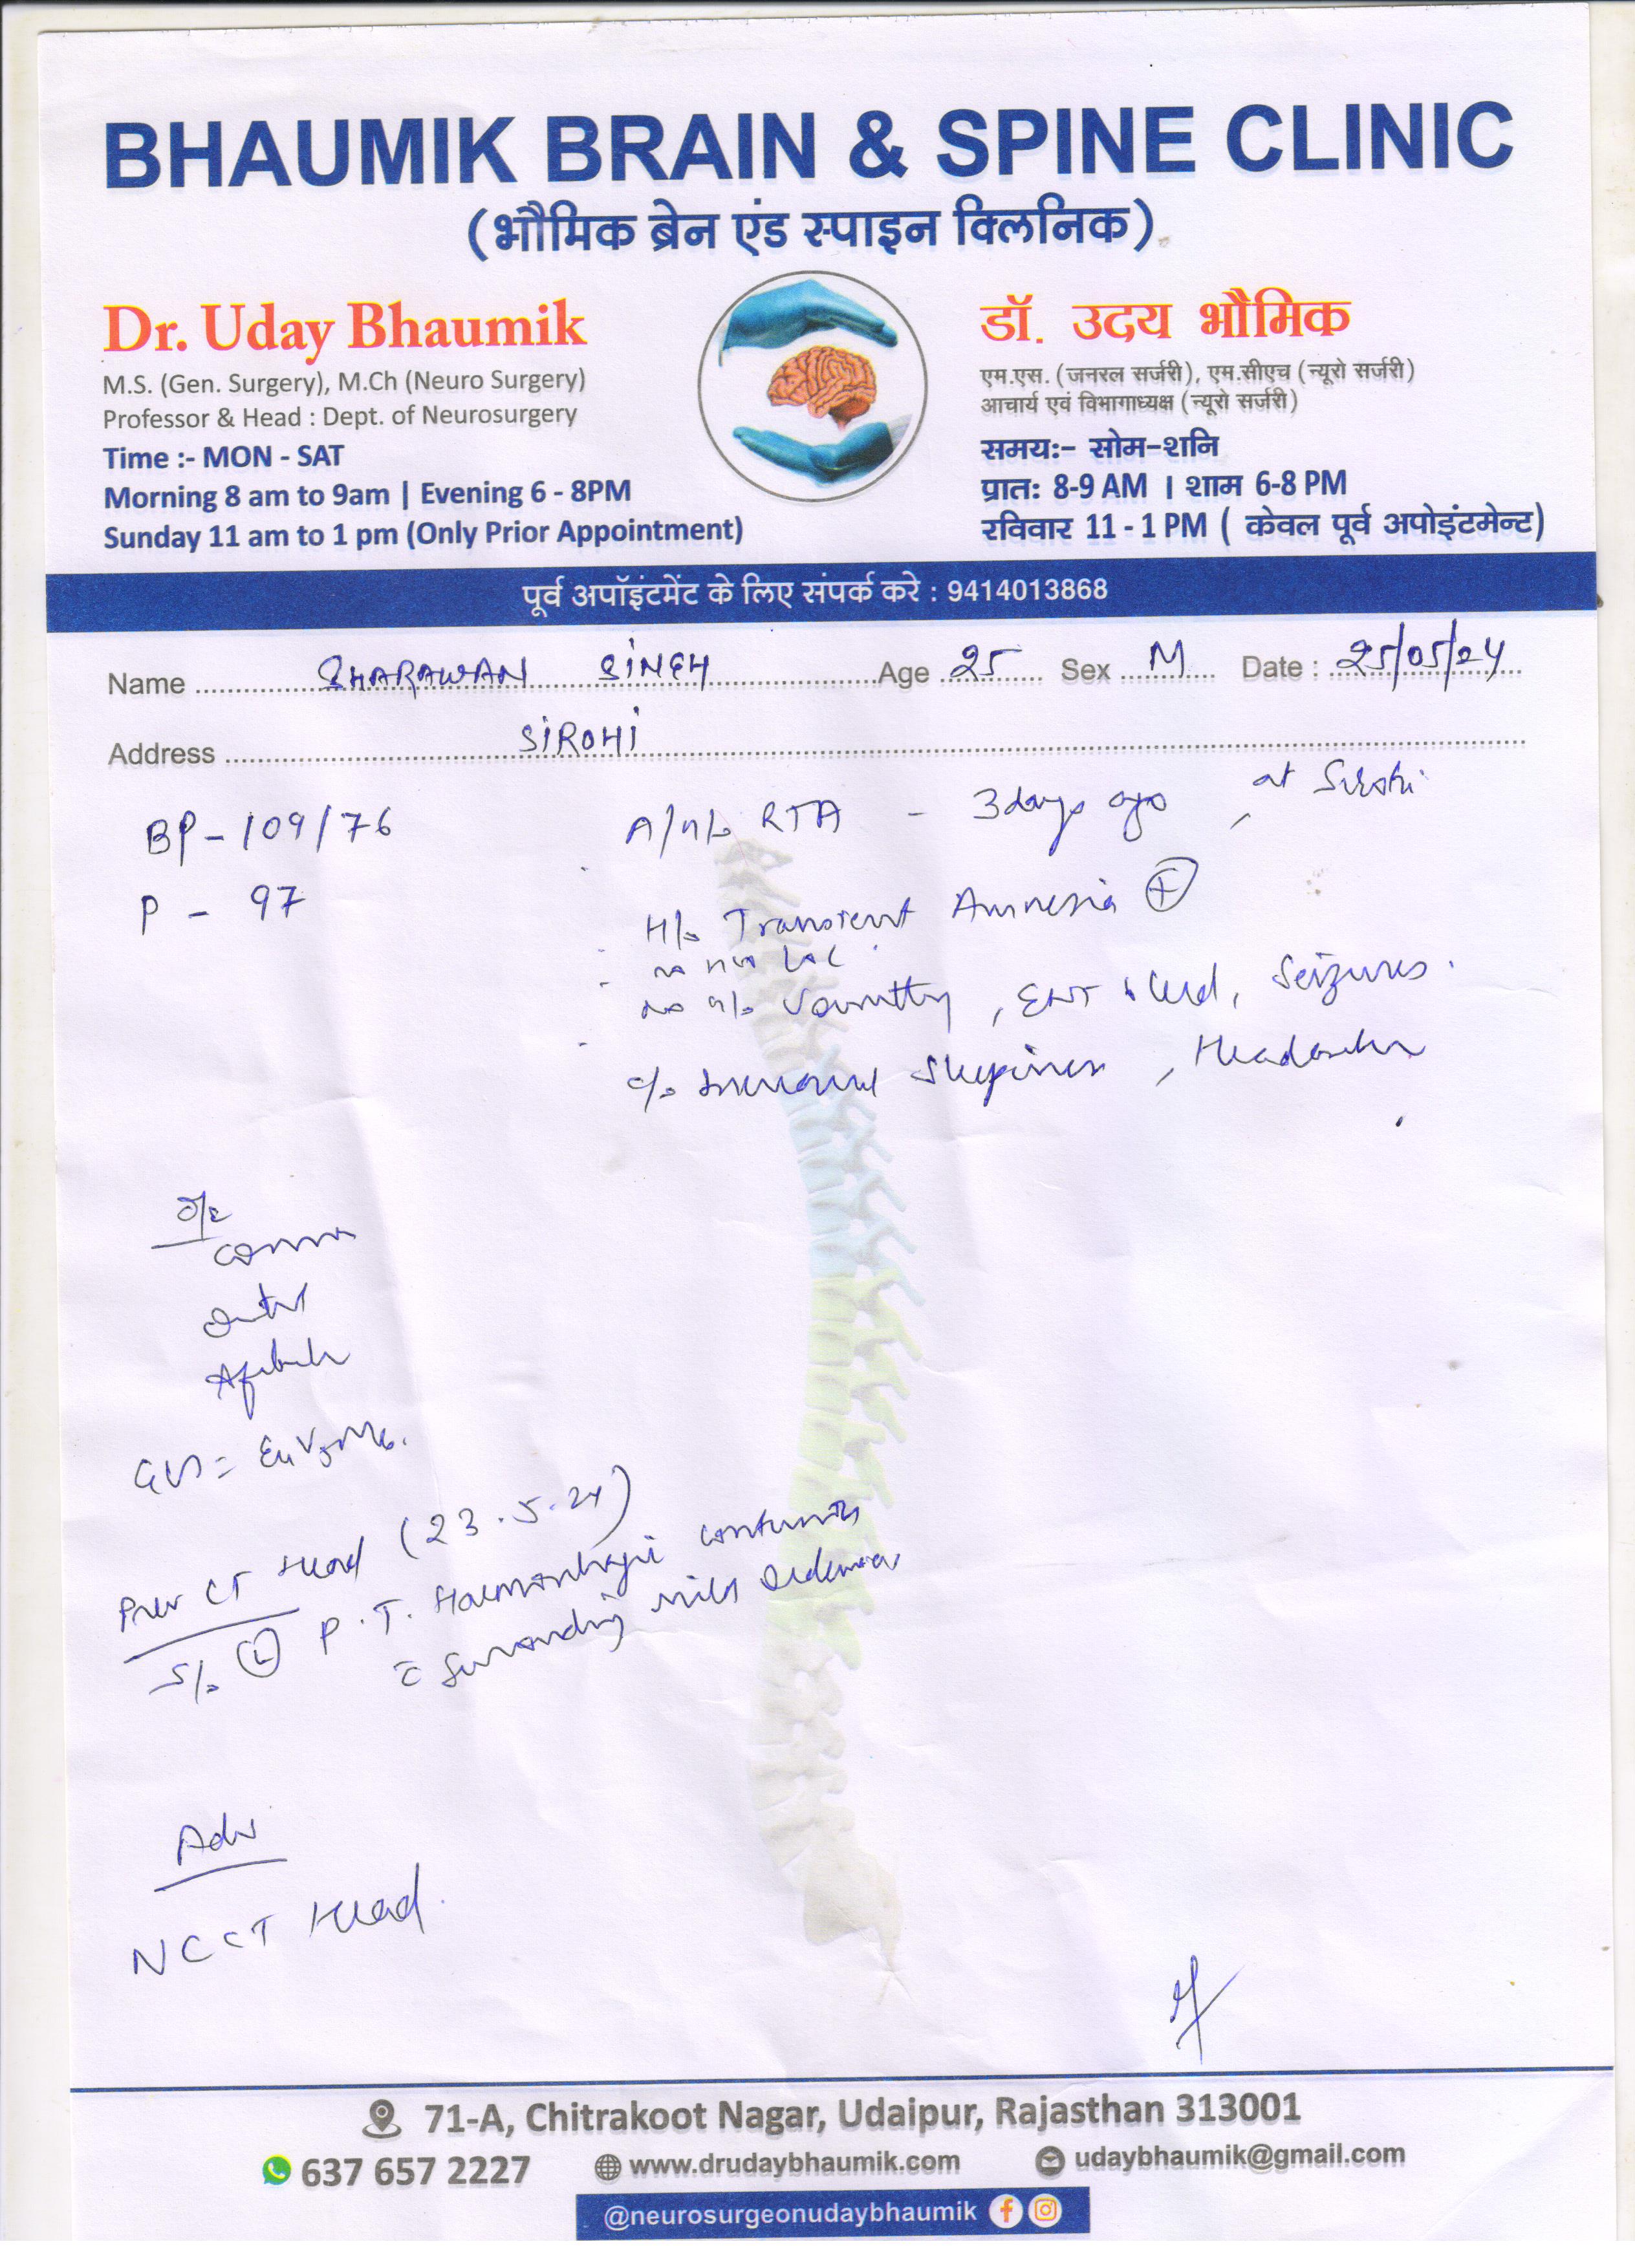 BHAUMIK BRAIN & SPINE CLINIC
(भौमिक ब्रेन एंड स्पाइन क्लिनिक)
Dr. Uday Bhaumik
M.S. (Gen. Surgery), M.Ch (Neuro Surgery)
Professor & Head : Dept. of Neurosurgery
Time :- MON - SAT
Morning 8 am to 9am | Evening 6 - 8PM
Sunday 11 am to 1 pm (Only Prior Appointment)
डॉ. उदय भौमिक
एम.एस. (जनरल सर्जरी), एम.सीएच (न्यूरो सर्जरी)
आचार्य एवं विभागाध्यक्ष (न्यूरो सर्जरी)
समयः- सोम-शनि
प्रातः 8-9 AM । शाम 6-8 PM
रविवार 11 - 1 PM ( केवल पूर्व अपोइंटमेन्ट)
पूर्व अपॉइंटमेंट के लिए संपर्क करे : 9414013868
Name SHARAWAN SINGH Age 25 Sex M Date : 25/05/24
Address SIROHI
BP - 109/76
P - 97
A/H/o RTA - 3 days ago, at Sirohi
H/o Transient Amnesia (+)
no h/o LOC
no h/o Vomitting, ENT bleed, Seizures.
c/o Increased Sleepiness, Headache
O/E
Afebrile
GCS = E4V5M6.
Prev CT Head (23.5.24)
S/o (L) P.T. Haemorrhagic contusions
c surrounding mild oedema
Adv
NCCT Head.
71-A, Chitrakoot Nagar, Udaipur, Rajasthan 313001
637 657 2227 www.drudaybhaumik.com udaybhaumik@gmail.com
@neurosurgeonudaybhaumik